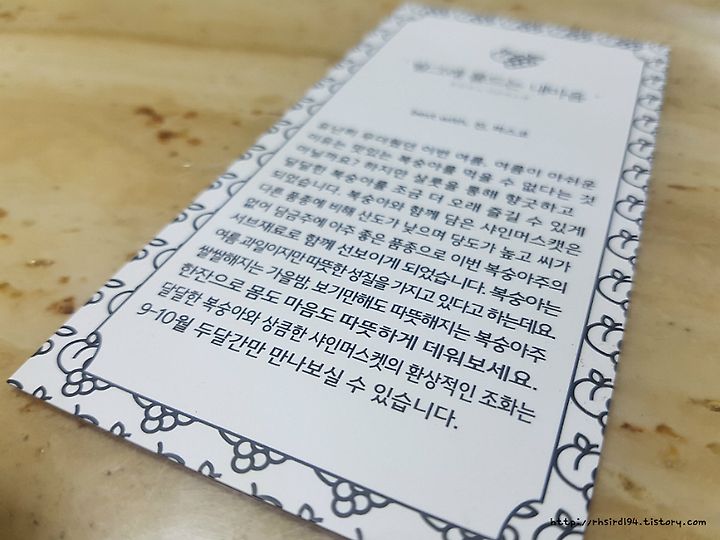 best with. 진, 럼, 보드카
유난히 무더웠던 이번 여름. 여름이 아쉬운
이유는 맛있는 복숭아를 먹을 수 없다는 것
아닐까요? 하지만 살롯을 통해 향긋하고
달달한 복숭아를 조금 더 오래 즐길 수 있게
되었습니다. 복숭아와 함께 담은 샤인머스켓은
다른 품종에 비해 산도가 낮으며 당도가 높고 씨가
없어 담금주에 아주 좋은 품종으로 이번 복숭아주의
서브재료로 함께 선보이게 되었습니다. 복숭아는
여름 과일이지만 따뜻한 성질을 가지고 있다고 하는데요.
쌀쌀해지는 가을밤. 보기만해도 따뜻해지는 복숭아주
한잔으로 몸도 마음도 따뜻하게 데워보세요.
달달한 복숭아와 상큼한 샤인머스켓의 환상적인 조화는
9-10월 두달간만 만나보실 수 있습니다.
http://rhsird194.tistory.com